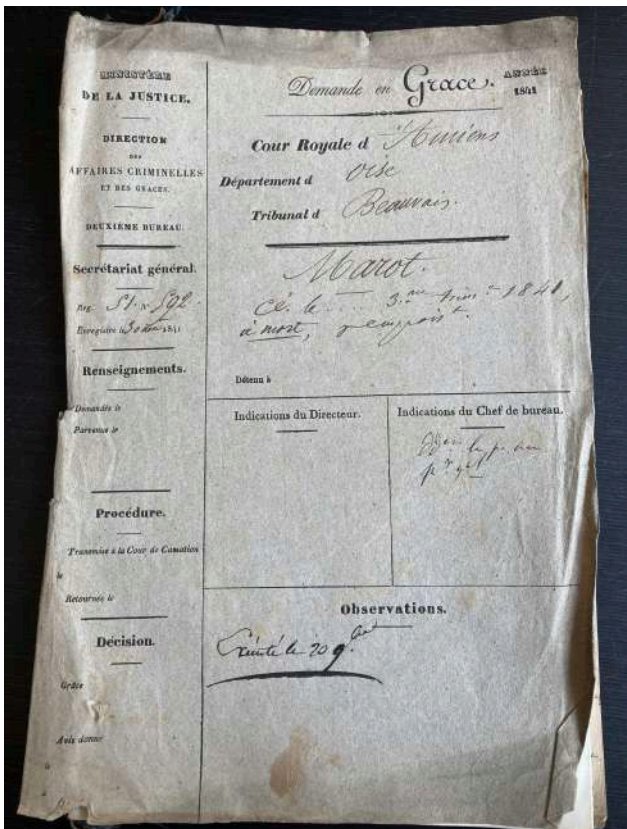 MINISTÈRE
DE LA JUSTICE.
DIRECTION
DES
AFFAIRES CRIMINELLES
ET DES GRACES.
DEUXIEME BUREAU.
Secrétariat général.
Reg. S1. N° 592.
Enregistré le 30 1841
Renseignements.
Demandés le
Parvenus le
Procédure.
Transmise à la Cour de Cassation
le
Retournée le
Décision.
Grâce
Avis donné
Demande en Grace. ANNÉE
1841
Cour Royale d'Amiens
Département d Oise
Tribunal d Beauvais.
Marot.
Cé. le .... 3.me trim.re 1841,
à mort, p. empois.t
Détenu à
Indications du Directeur.
Indications du Chef de bureau.
Observations.
Exécuté le 20 9.bre